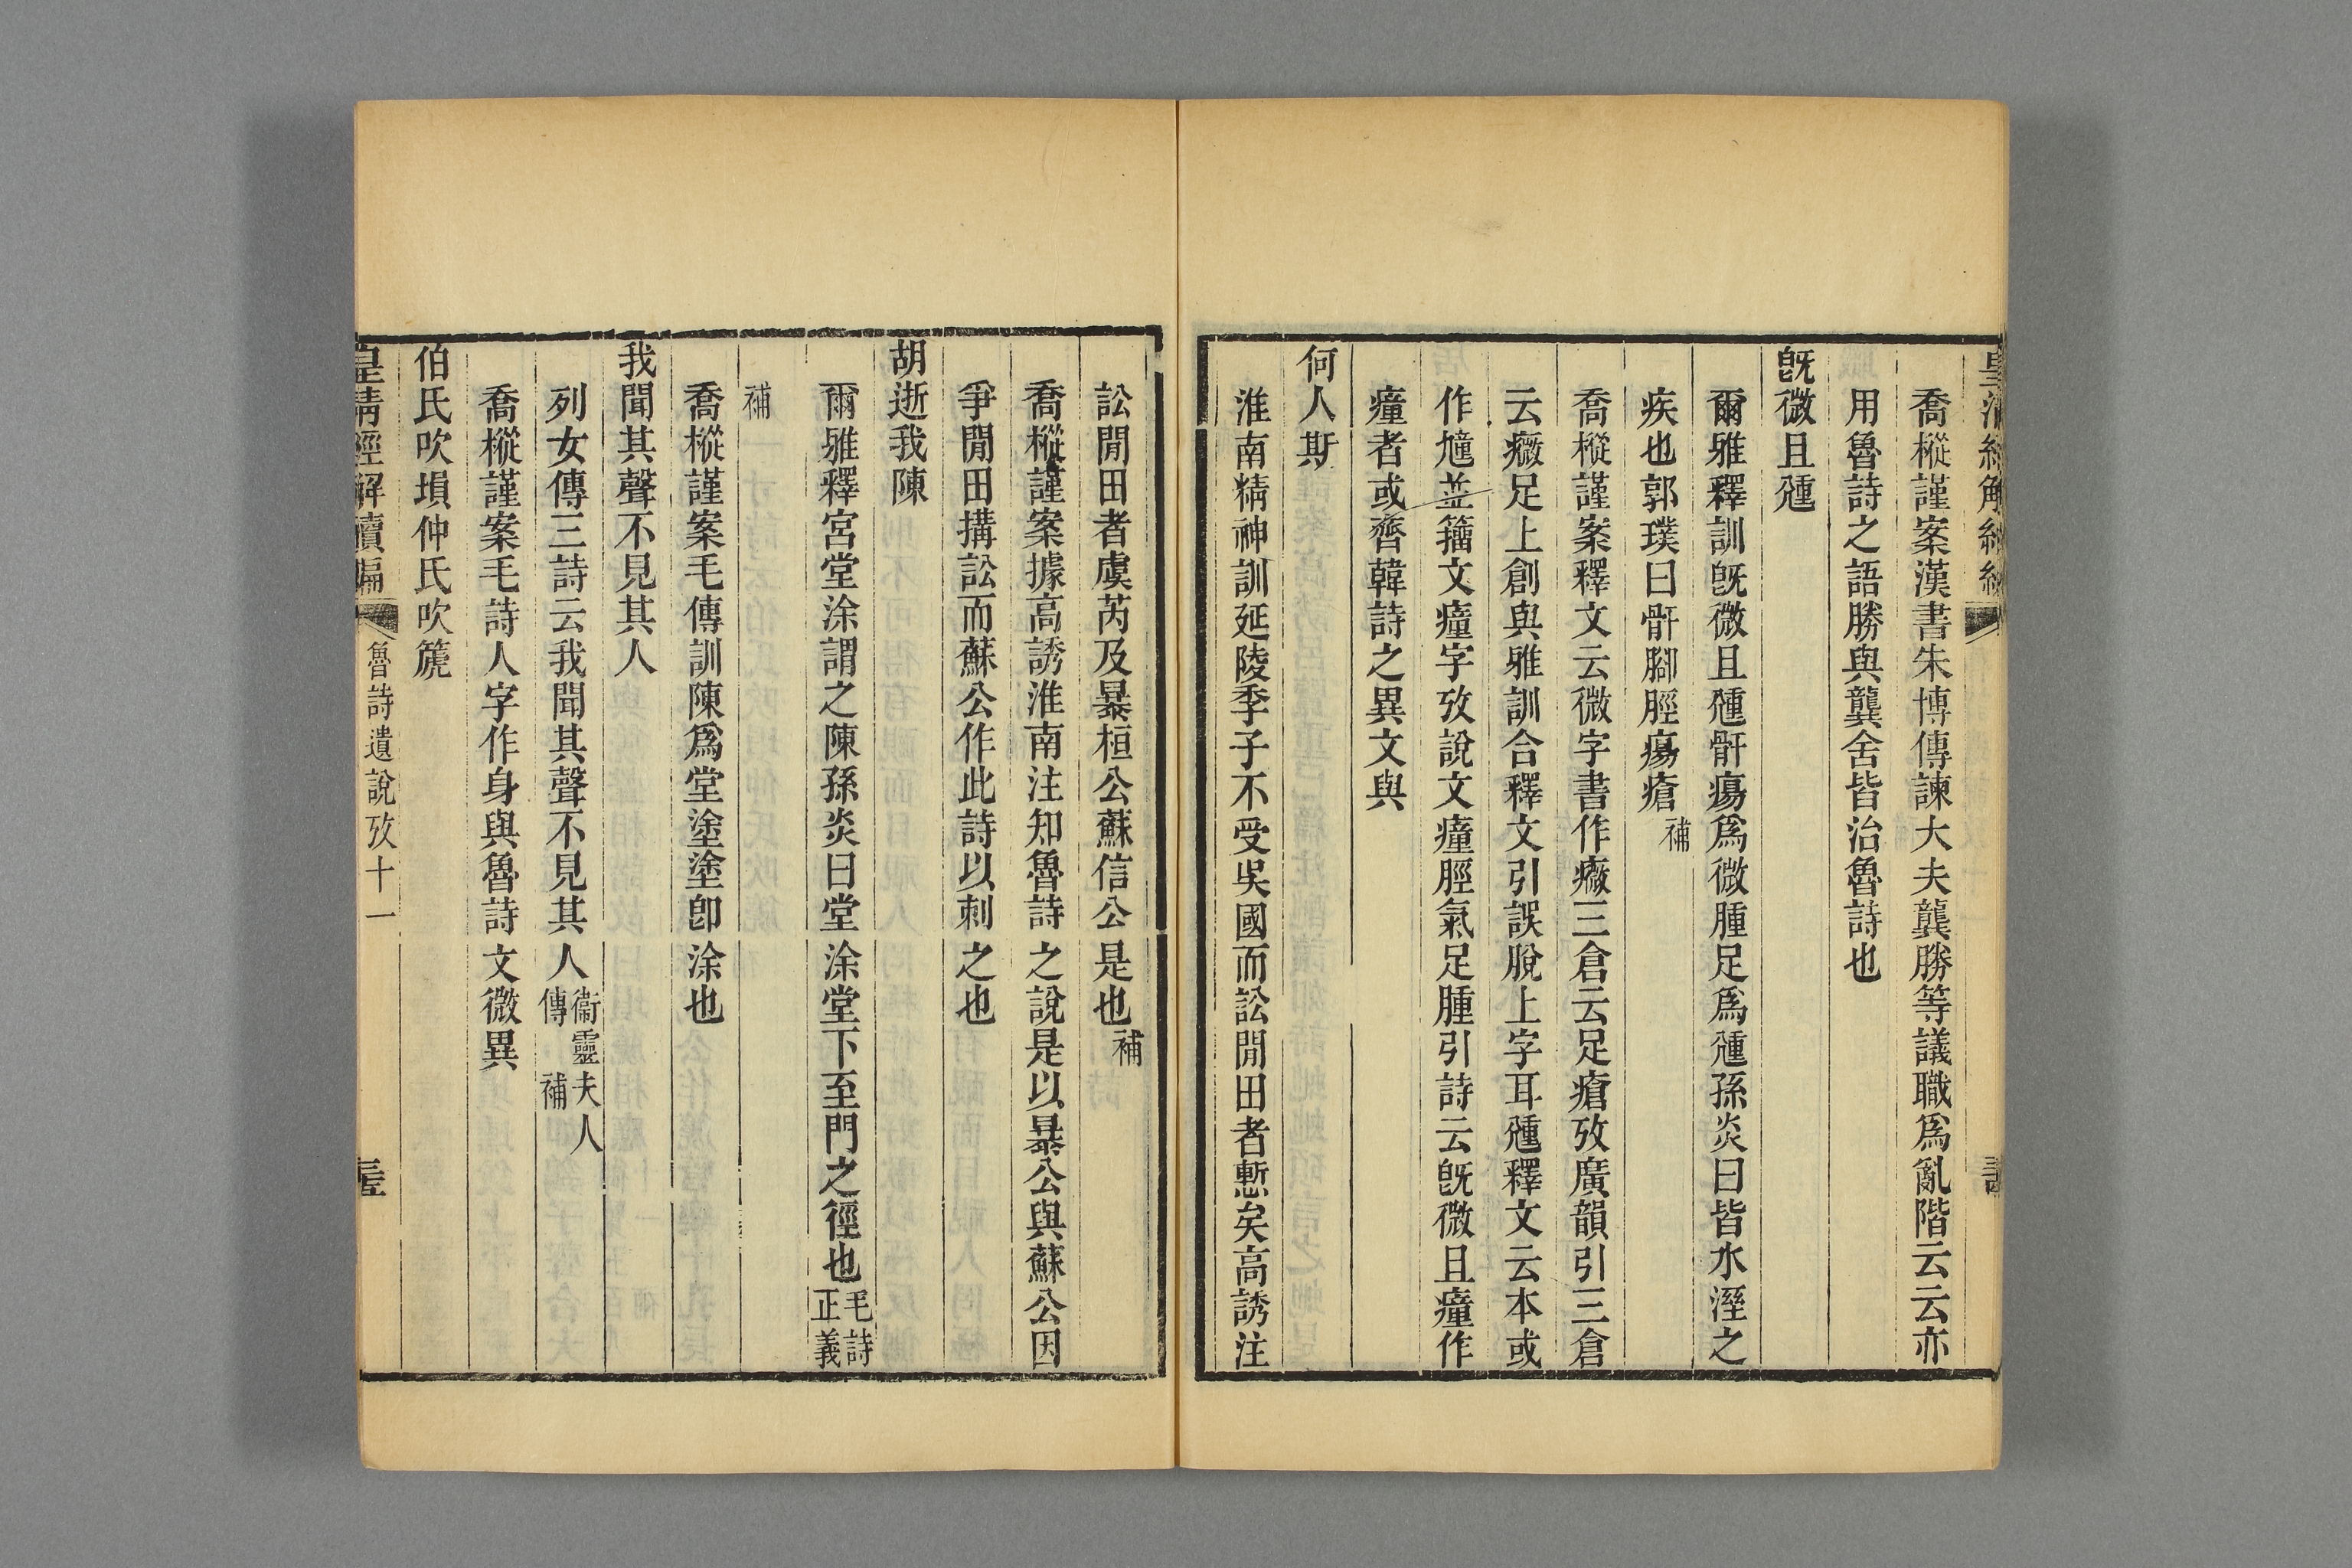 喬樅謹案漢書朱博傳諫大夫龔勝等議職爲亂階云云亦
用魯詩之語勝與龔舍皆治魯詩也
旣微且尰
爾雅釋訓旣微且尰骭瘍爲微腫足爲尰孫炎曰皆水溼之
疾也郭璞曰骭腳脛瘍瘡補
喬樅謹案釋文云微字書作癓三倉云足瘡攷廣韻引三倉
云癓足上創與雅訓合釋文引誤脫上字耳尰釋文云本或
作㣫並籀文㿈字攷說文㿈脛氣足腫引詩云旣微且㿈作
㿈者或齊韓詩之異文與
何人斯
淮南精神訓延陵季子不受吳國而訟閒田者慙矣高誘注
訟閒田者虞芮及暴桓公蘇信公是也補
喬樅謹案據高誘淮南注知魯詩之說是以暴公與蘇公因
爭閒田搆訟而蘇公作此詩以刺之也
胡逝我陳
爾雅釋宮堂涂謂之陳孫炎曰堂涂堂下至門之徑也毛詩正義
補
喬樅謹案毛傳訓陳爲堂塗塗卽涂也
我聞其聲不見其人
列女傳三詩云我聞其聲不見其人衞靈夫人傳補
喬樅謹案毛詩人字作身與魯詩文微異
伯氏吹塤仲氏吹篪
皇清經解續編 魯詩遺說攷十一